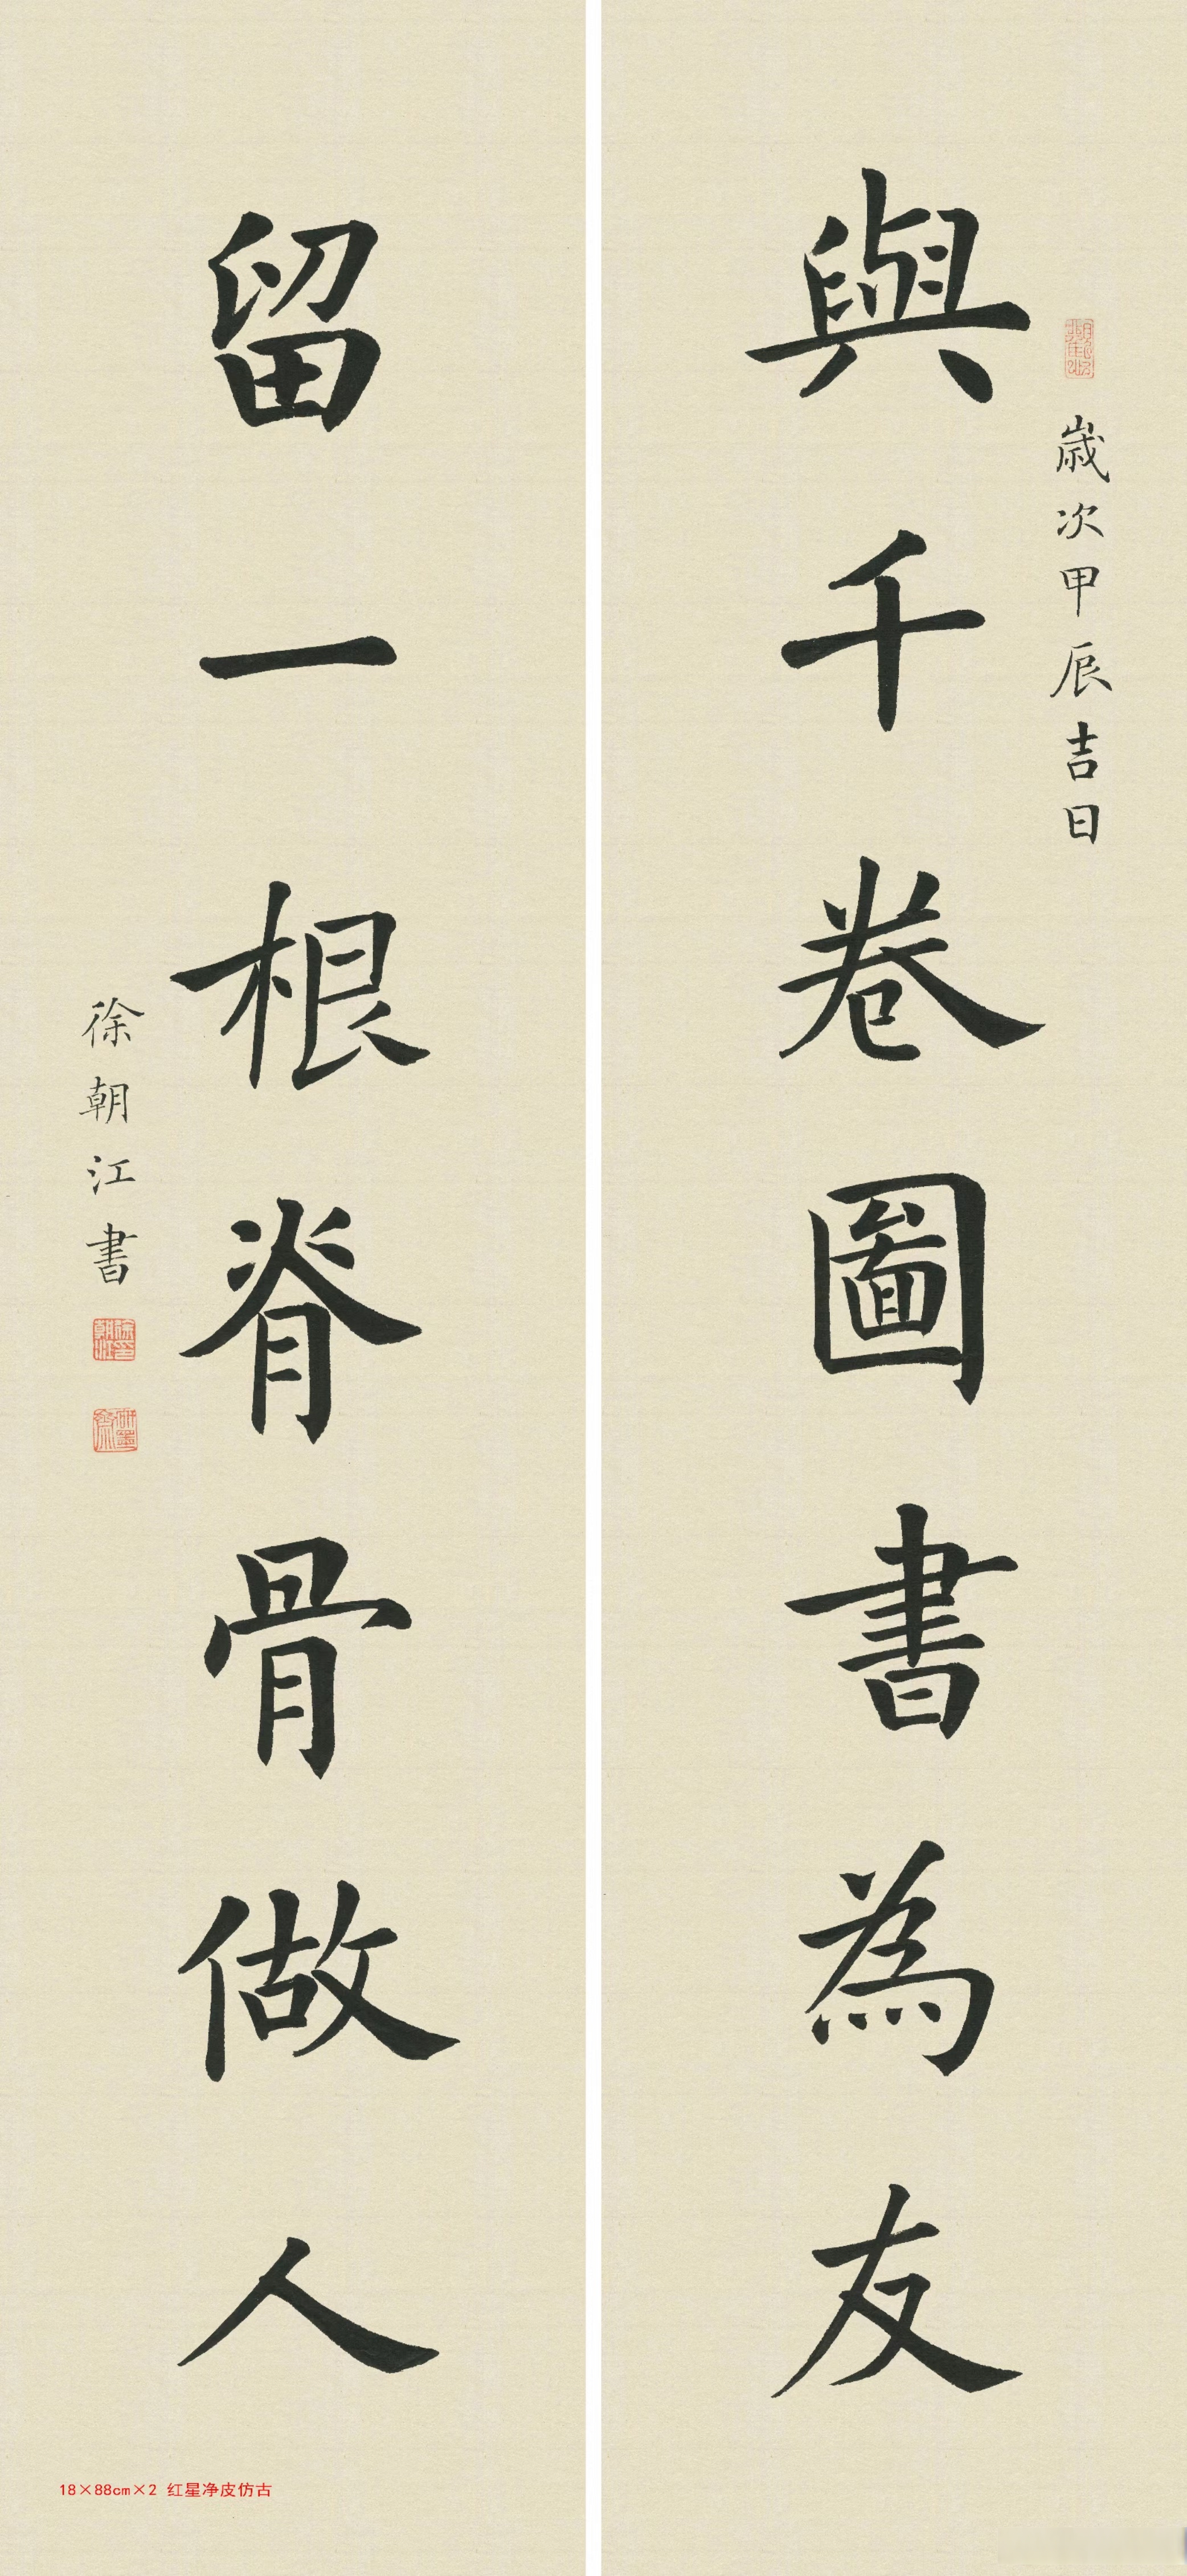 歲次甲辰吉日
與千卷圖書為友
留一根脊骨做人
徐朝江書
18×88cm×2 红星净皮仿古